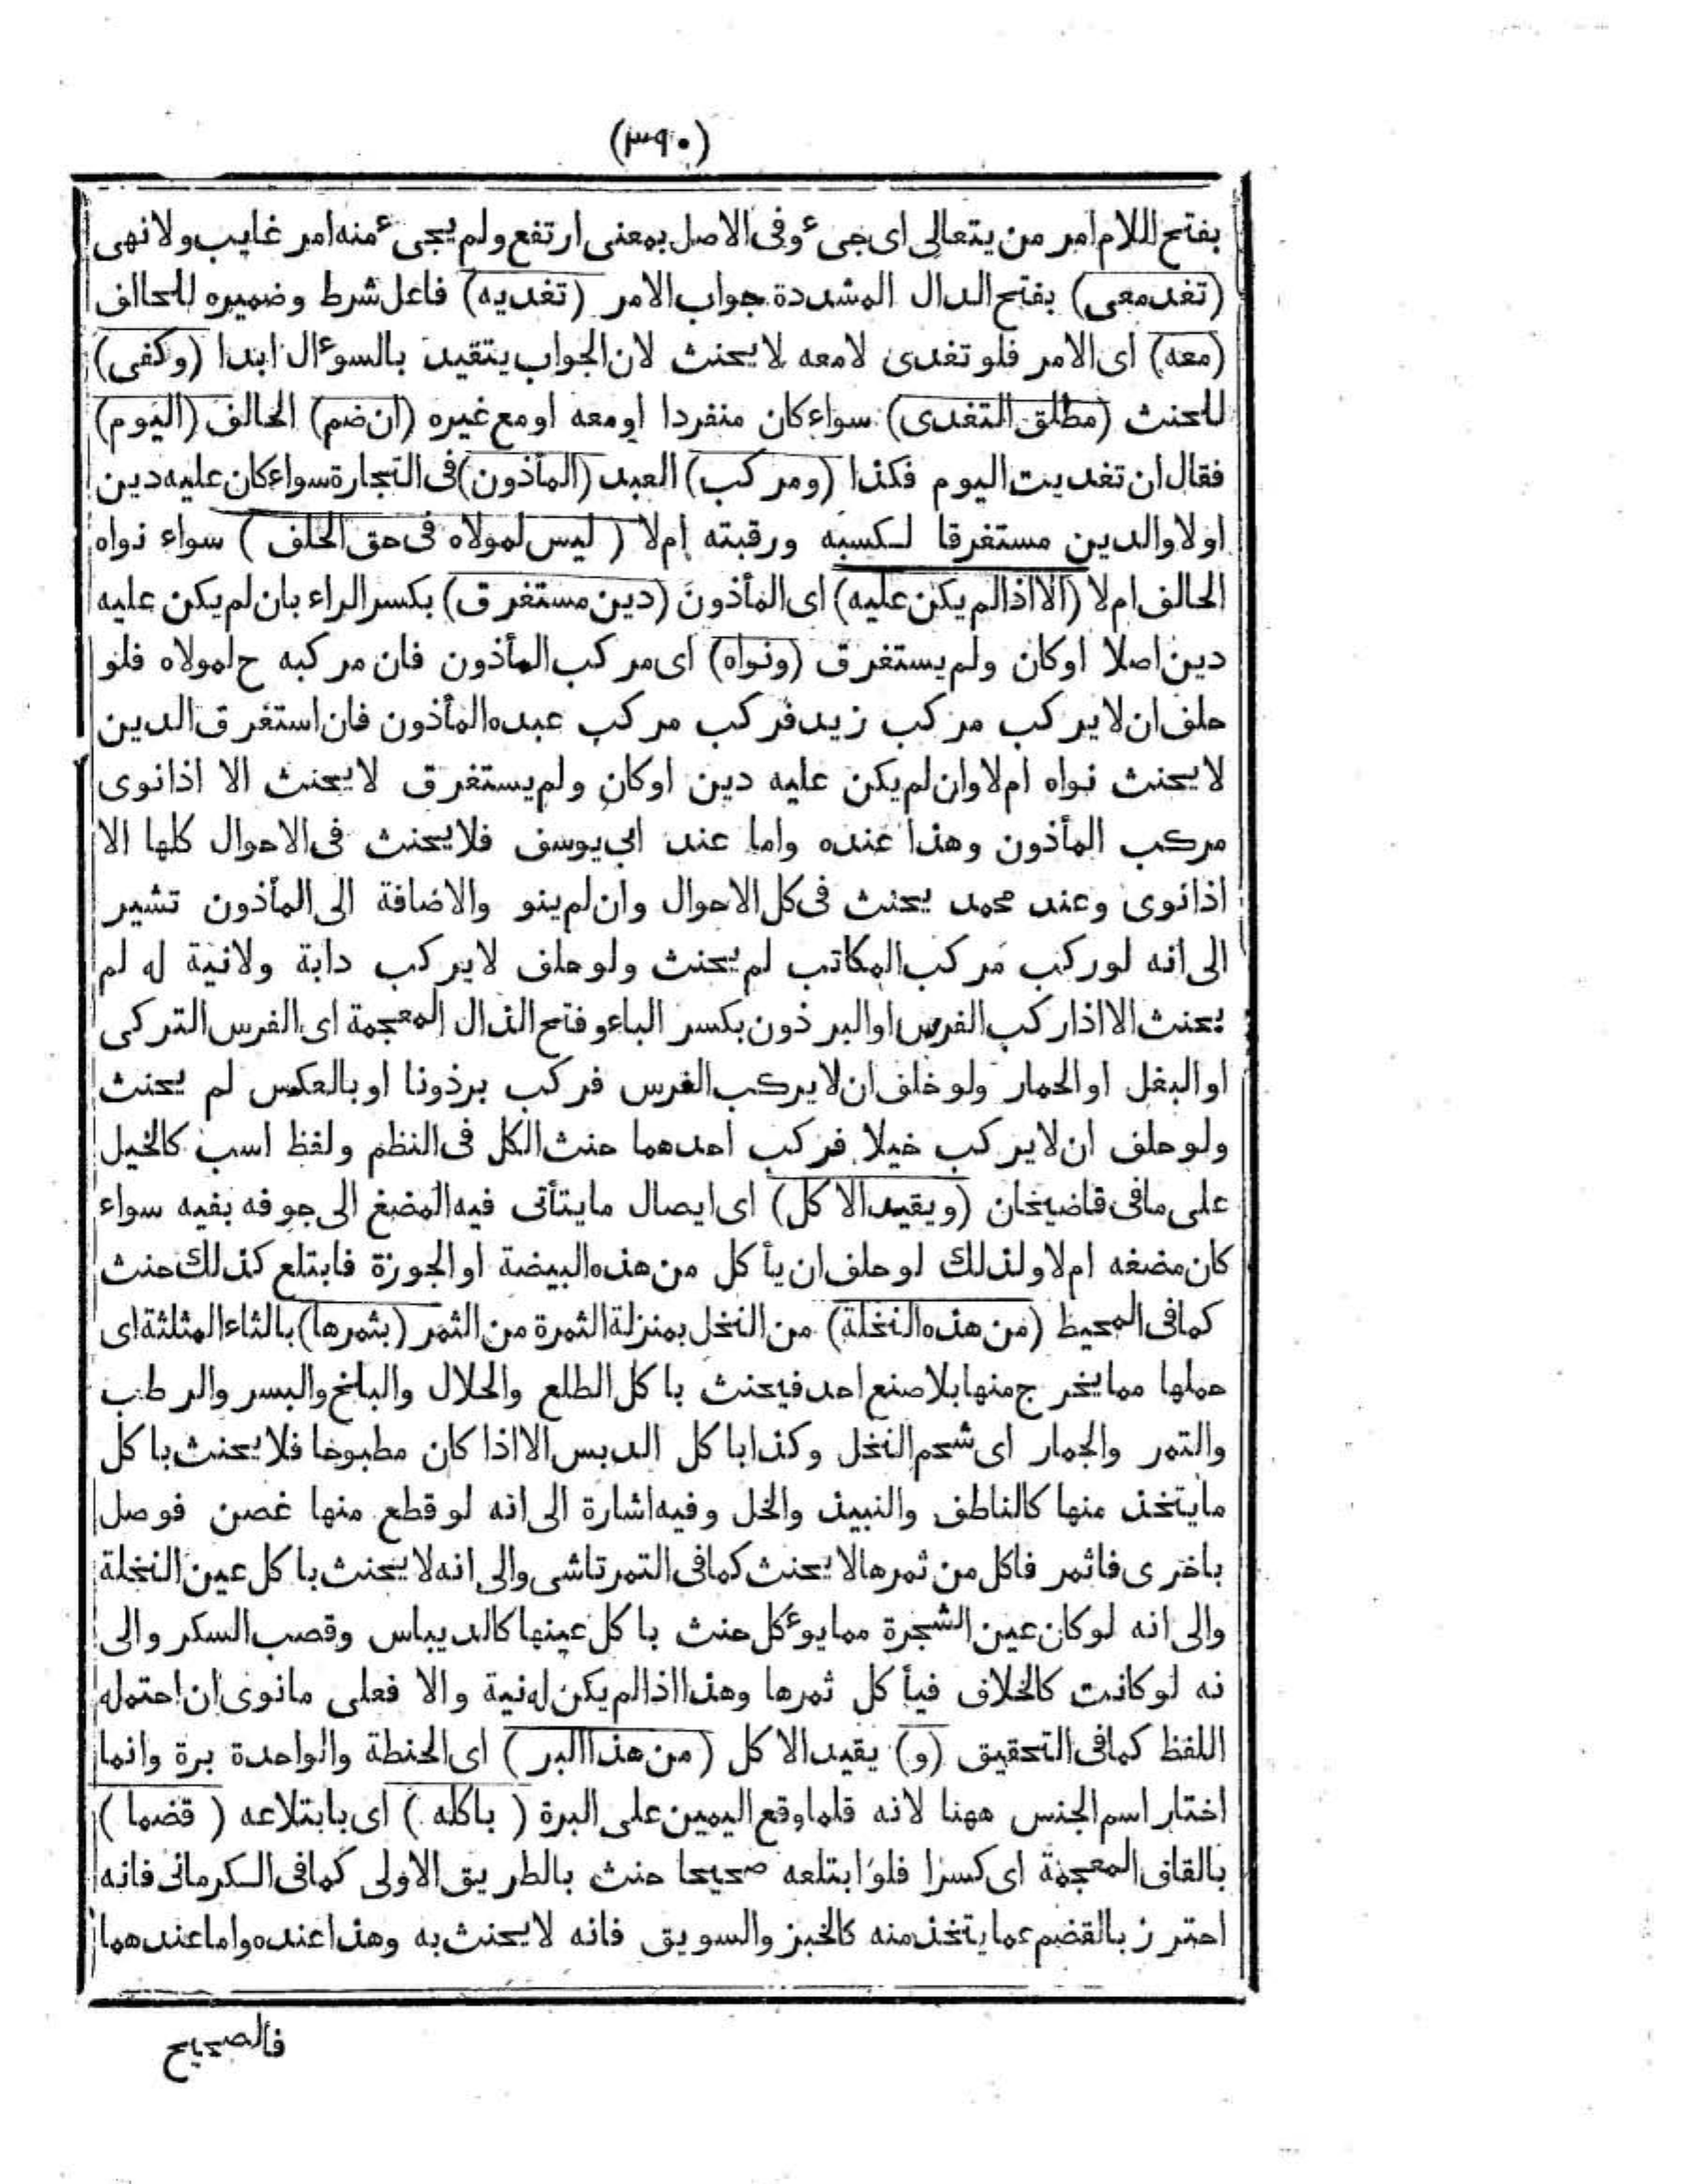 (٣٩٠)
بفتح اللام امر من يتعالى اى جىء وفى الاصل بمعنى ارتفع ولم يجىء منه امر غايب ولا نهى
(تغد معى) بفتح الدال المشددة جواب الامر (تغديه) فاعل شرط وضميره للحالف
(معه) اى الامر فلو تغدى لا معه لا يحنث لان الجواب يتقيد بالسوءال ابدا (وكفى)
للحنث (مطلق التغدى) سواء كان منفردا او معه او مع غيره (ان ضم) الحالف (اليوم)
فقال ان تغديت اليوم فكذا (ومركب) العبد (المأذون) فى التجارة سواء كان عليه دين
اولا والدين مستغرقا لكسبه ورقبته ام لا (ليس لمولاه فى حق الحلف) سواء نواه
الحالف ام لا (الا اذا لم يكن عليه) اى المأذون (دين مستغرق) بكسر الراء بان لم يكن عليه
دين اصلا او كان ولم يستغرق (ونواه) اى مركب المأذون فان مركبه ح لمولاه فلو
حلف ان لا يركب مركب زيد فركب مركب عبده المأذون فان استغرق الدين
لا يحنث نواه ام لا وان لم يكن عليه دين او كان ولم يستغرق لا يحنث الا اذا نوى
مركب المأذون وهذا عنده واما عند ابى يوسف فلا يحنث فى الاحوال كلها الا
اذا نوى وعند محمد يحنث فى كل الاحوال وان لم ينو والاضافة الى المأذون تشير
الى انه لو ركب مركب المكاتب لم يحنث ولو حلف لا يركب دابة ولا نية له لم
يحنث الا اذا ركب الفرس او البرذون بكسر الباء وفتح الذال المعجمة اى الفرس التركى
او البغل او الحمار ولو خلف ان لا يركب الفرس فركب برذونا او بالعكس لم يحنث
ولو حلف ان لا يركب خيلا فركب احدهما حنث الكل فى النظم ولفظ اسب كالخيل
على ما فى قاضيخان (ويقيد الاكل) اى ايصال ما يتأتى فيه المضغ الى جوفه بفيه سواء
كان مضغه ام لا ولذلك لو حلف ان يأكل من هذه البيضة او الجوزة فابتلع كذلك حنث
كما فى المحيط (من هذه النخلة) من النخل بمنزلة الثمرة من الثمر (بثمرها) بالثاء المثلثة اى
حملها مما يخرج منها بلا صنع احد فيحنث باكل الطلع والخلال والبلح والبسر والرطب
والتمر والجمار اى شحم النخل وكذا باكل الدبس الا اذا كان مطبوخا فلا يحنث باكل
ما يتخذ منها كالناطف والنبيذ والخل وفيه اشارة الى انه لو قطع منها غصن فوصل
باخرى فاثمر فاكل من ثمرها لا يحنث كما فى التمرتاشى والى انه لا يحنث باكل عين النخلة
والى انه لو كان عين الشجرة مما يوءكل حنث باكل عينها كالديباس وقصب السكر والى
نه لو كانت كالخلاف فيأكل ثمرها وهذا اذا لم يكن له نية والا فعلى ما نوى ان احتمله
اللفظ كما فى التحقيق (و) يقيد الاكل (من هذا البر) اى الحنطة والواحدة برة وانما
اختار اسم الجنس ههنا لانه قلما وقع اليمين على البرة (باكله) اى بابتلاعه (قضما)
بالقاف المعجمة اى كسرا فلو ابتلعه صحيحا حنث بالطريق الاولى كما فى الكرمانى فانه
احترز بالقضم عما يتخذ منه كالخبز والسويق فانه لا يحنث به وهذا عنده واما عندهما
فالصحيح